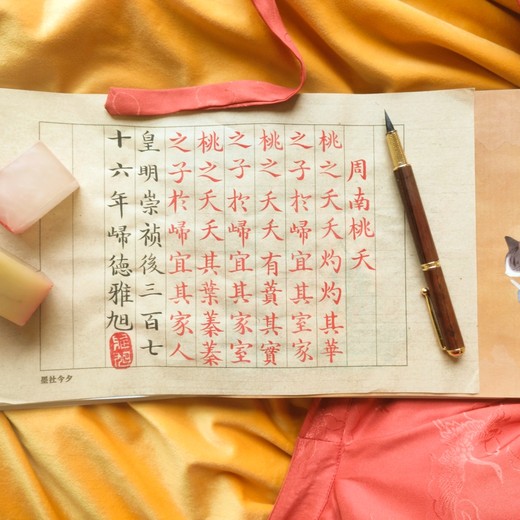 周南桃夭
桃之夭夭灼灼其華
之子於歸宜其室家
桃之夭夭有蕡其實
之子於歸宜其家室
桃之夭夭其葉蓁蓁
之子於歸宜其家人
皇明崇禎後三百七
十六年歸德雅旭
墨社今夕